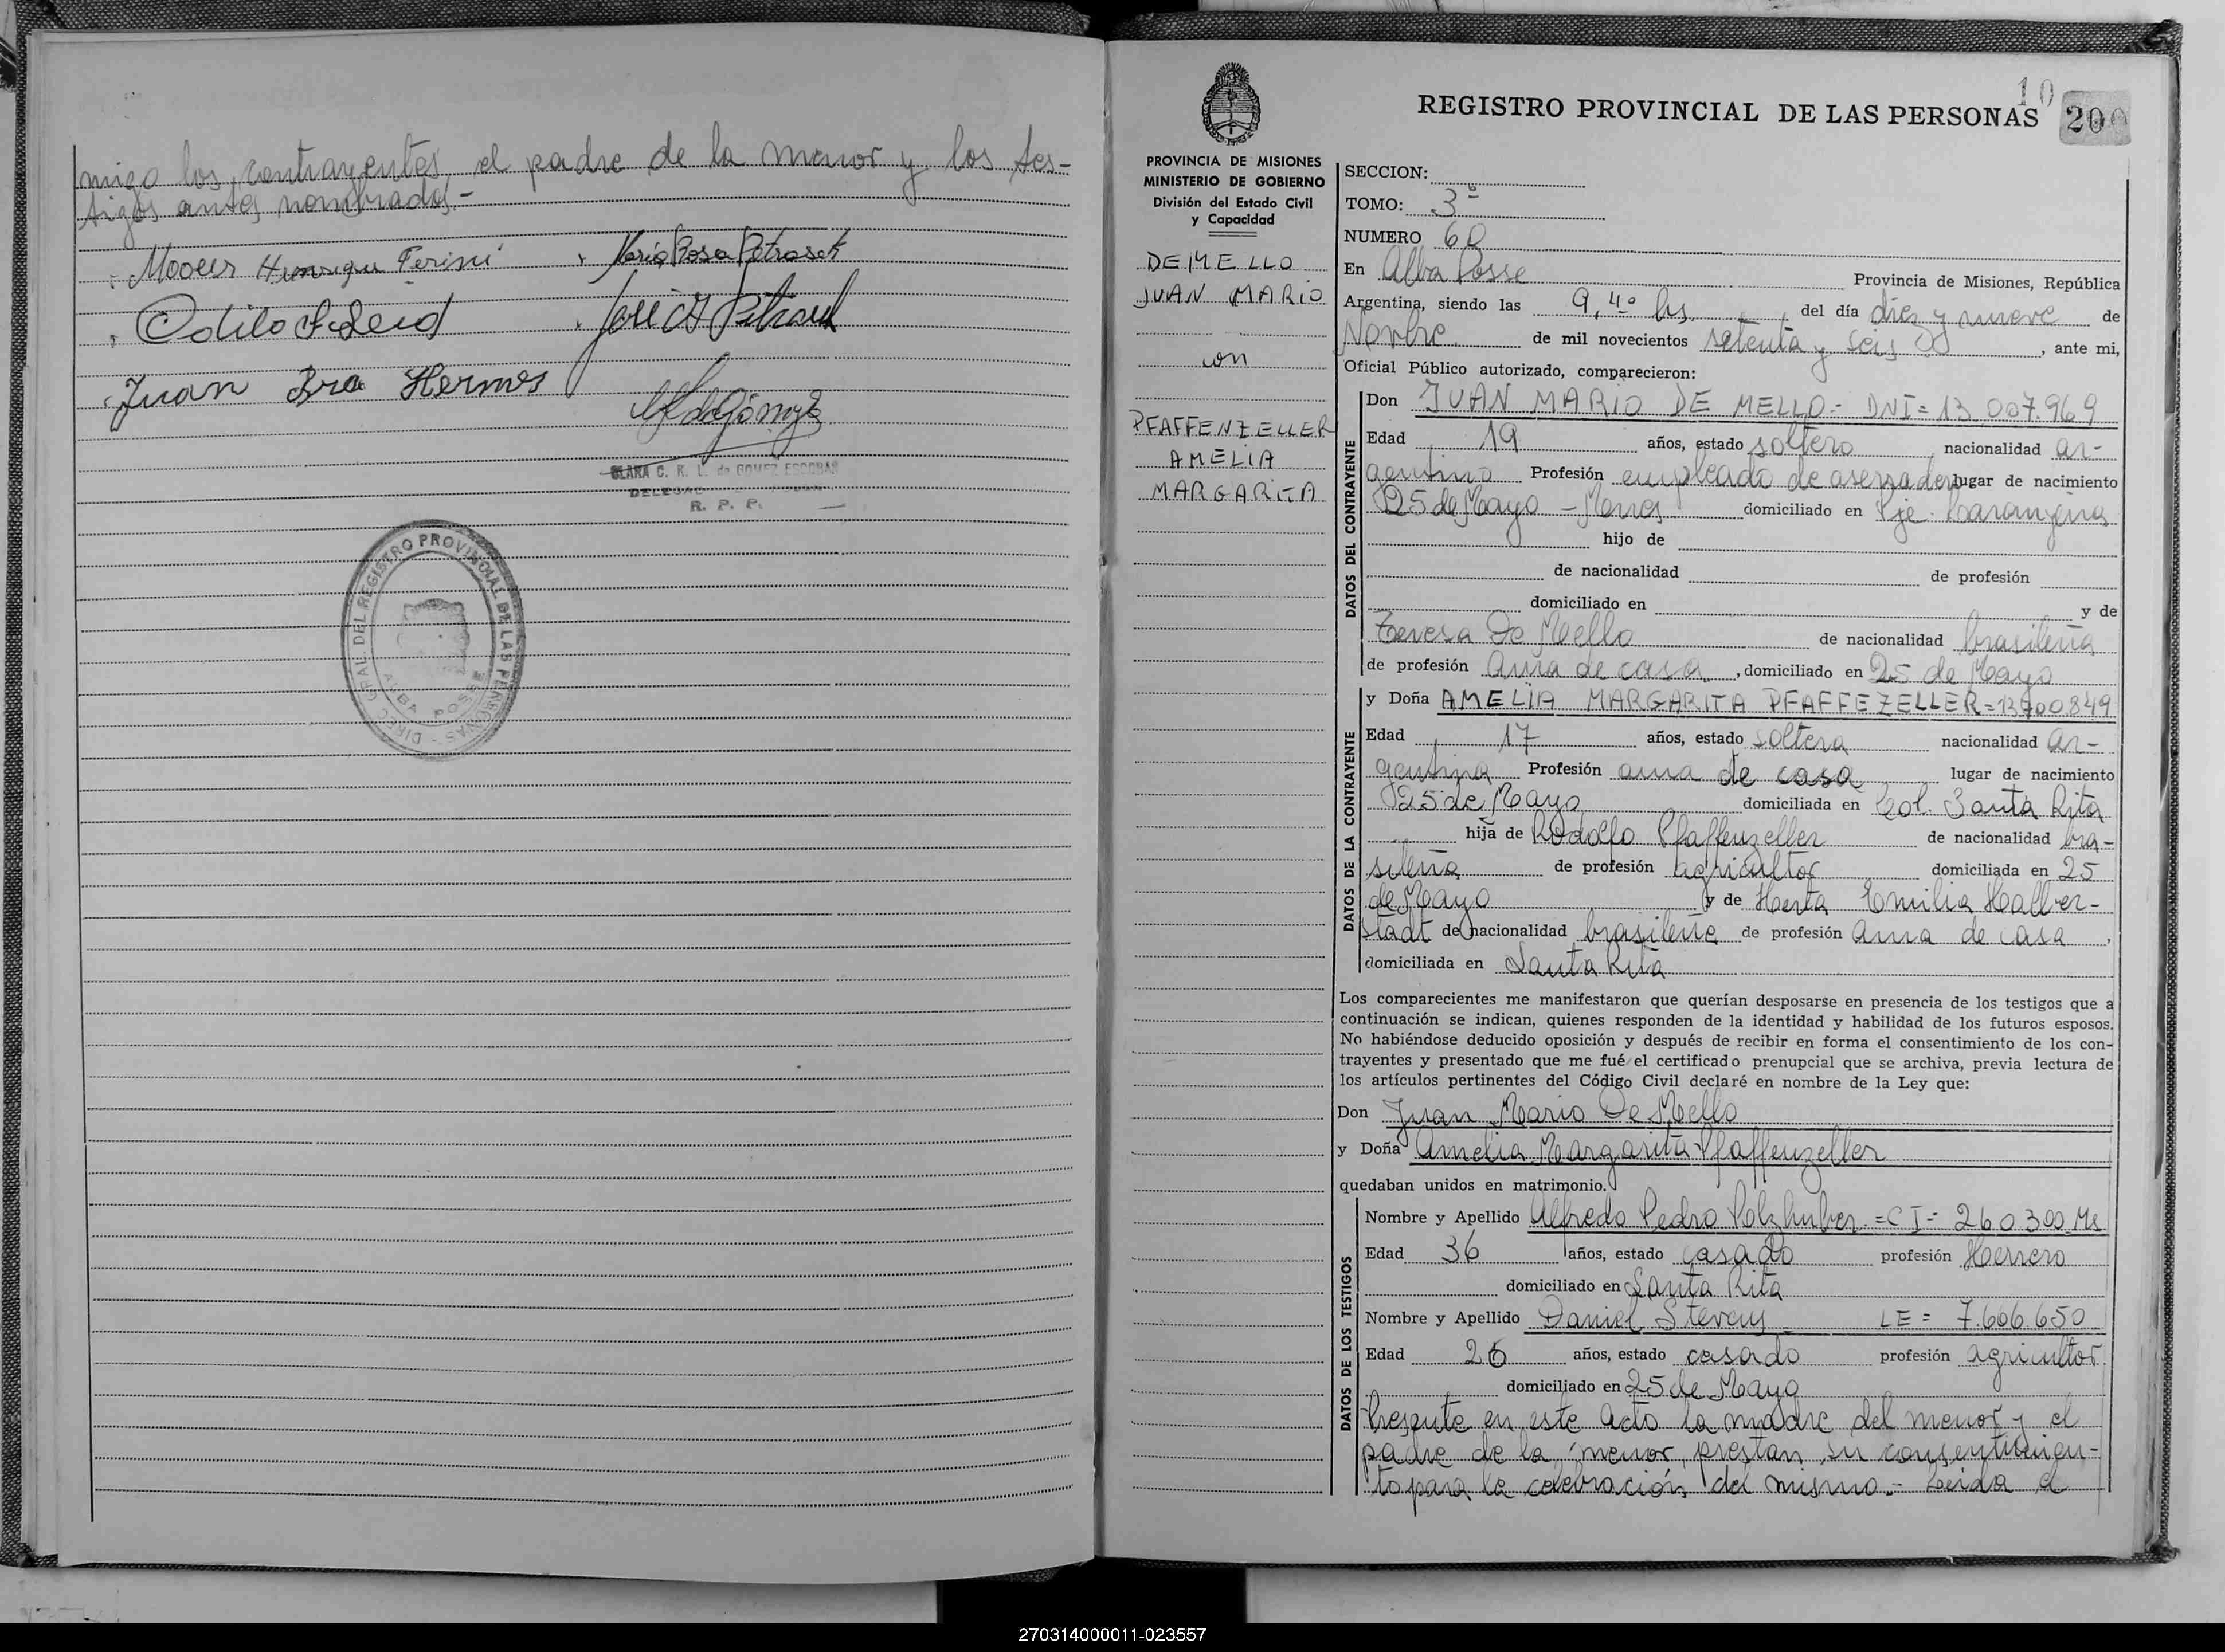 migo los contrayentes, el padre de la menor y los tes-
tigos antes nombrados.-
Moacir Henrique Ferini
María Rosa Petrasek
José A Petrasek
Juan Bra Hermes
CLARA C. K. L. de GOMEZ ESCOBAR
R. P. P.
DIREC. GRAL. DEL REGISTRO PROVINCIAL DE LAS PERSONAS
ALBA POSSE
10
200
REGISTRO PROVINCIAL DE LAS PERSONAS
PROVINCIA DE MISIONES
MINISTERIO DE GOBIERNO
División del Estado Civil
y Capacidad
DE MELLO
JUAN MARIO
con
PFAFFENZELLER
AMELIA
MARGARITA
SECCION:
TOMO: 3º
NUMERO 60
En Alba Posse Provincia de Misiones, República
Argentina, siendo las 9,40 hs. del día diez y nueve de
Novbre. de mil novecientos setenta y seis, ante mi,
Oficial Público autorizado, comparecieron:
DATOS DEL CONTRAYENTE
Don JUAN MARIO DE MELLO.- DNI= 13.007.969
Edad 19 años, estado soltero nacionalidad ar-
gentino Profesión empleado de aserradero lugar de nacimiento
25 de Mayo - Mnes domiciliado en Pje. Laranyeira
hijo de
de nacionalidad de profesión
domiciliado en y de
Teresa De Mello de nacionalidad brasileña
de profesión Ama de casa, domiciliado en 25 de Mayo
DATOS DE LA CONTRAYENTE
y Doña AMELIA MARGARITA PFAFFEZELLER=13900849
Edad 17 años, estado soltera nacionalidad ar-
gentina Profesión ama de casa lugar de nacimiento
25 de Mayo domiciliada en Col. Santa Rita
hija de Rodolfo Pfaffenzeller de nacionalidad bra-
sileña de profesión agricultor domiciliada en 25
de Mayo y de Herta Emilia Halber-
stadt de nacionalidad brasileña de profesión Ama de casa,
domiciliada en Santa Rita
Los comparecientes me manifestaron que querían desposarse en presencia de los testigos que a
continuación se indican, quienes responden de la identidad y habilidad de los futuros esposos.
No habiéndose deducido oposición y después de recibir en forma el consentimiento de los con-
trayentes y presentado que me fué el certificado prenupcial que se archiva, previa lectura de
los artículos pertinentes del Código Civil declaré en nombre de la Ley que:
Don Juan Mario De Mello
y Doña Amelia Margarita Pfaffenzeller
quedaban unidos en matrimonio.
DATOS DE LOS TESTIGOS
Nombre y Apellido Alfredo Pedro Polzhuber.=CI= 260300 Ms
Edad 36 años, estado casado profesión Herrero
domiciliado en Santa Rita
Nombre y Apellido Daniel Stevens LE= 7.606.650
Edad 26 años, estado casado profesión agricultor
domiciliado en 25 de Mayo
Presente en este acto la madre del menor y el
padre de la menor, prestan su consentimien-
to para la celebración del mismo.- Leida el
270314000011-023557